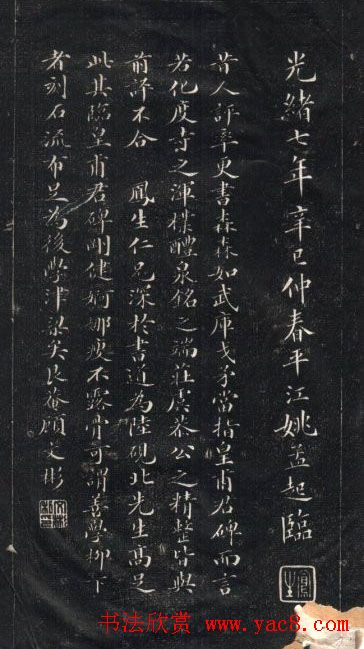 光緒七年辛巳仲春平江姚孟起臨
鳳生
昔人評率更書森森如武庫戈矛當指皇甫君碑而言
若化度寺之渾樸醴泉銘之端莊虞恭公之精整皆與
前評不合 鳳生仁兄深於書道為陸硯北先生高足
此其臨皇甫君碑剛健婀娜瘦不露骨可謂善學柳下
者刻石流布足為後學津梁矣艮葊顧文彬
书法欣赏 www.yac8.com